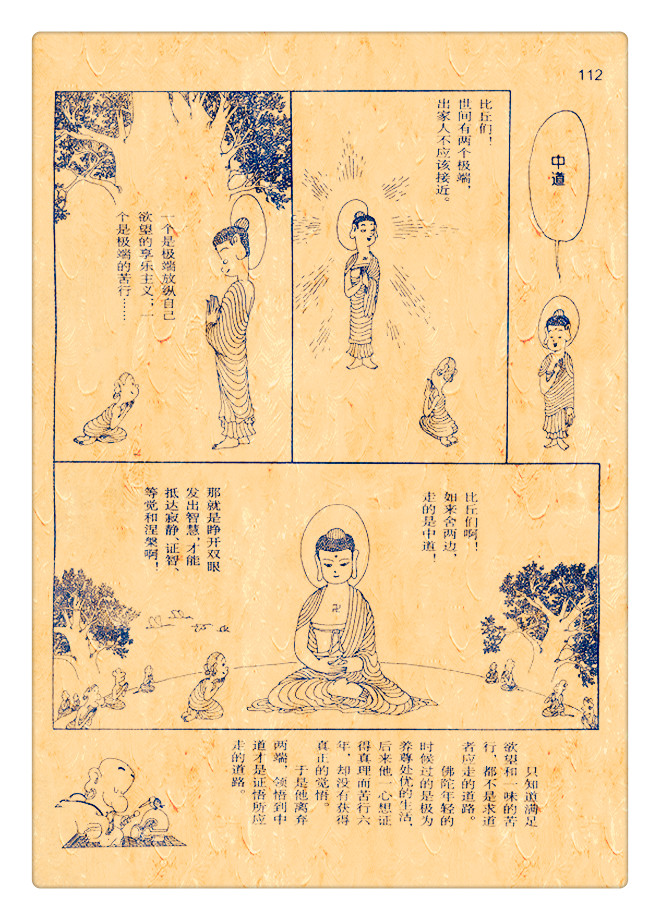 112
中道
比丘们！
世间有两个极端，
出家人不应该接近。
一个是极端放纵自己
欲望的享乐主义；一
个是极端的苦行……
比丘们啊！
如来舍两边，
走的是中道！
那就是睁开双眼
发出智慧，才能
抵达寂静、证智、
等觉和涅槃啊！
只知道满足
欲望和一味的苦
行，都不是求道
者应走的道路。
佛陀年轻的
时候过的是极为
养尊处优的生活，
后来他一心想证
得真理而苦行六
年，却没有获得
真正的觉悟。
于是他离弃
两端，领悟到中
道才是证悟所应
走的道路。